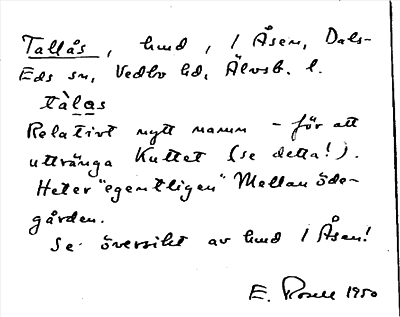 Tallås, hmd, 1 Åsen, Dals-
Eds sn, Vedbo hd, Älvsb. l.
tàlas
Relativt nytt namn - för att
uttränga Kuttet (se detta!).
Heter "egentligen" Mellanöde-
gården.
Se översikt av hmd 1 Åsen!
E. Rosell 1950